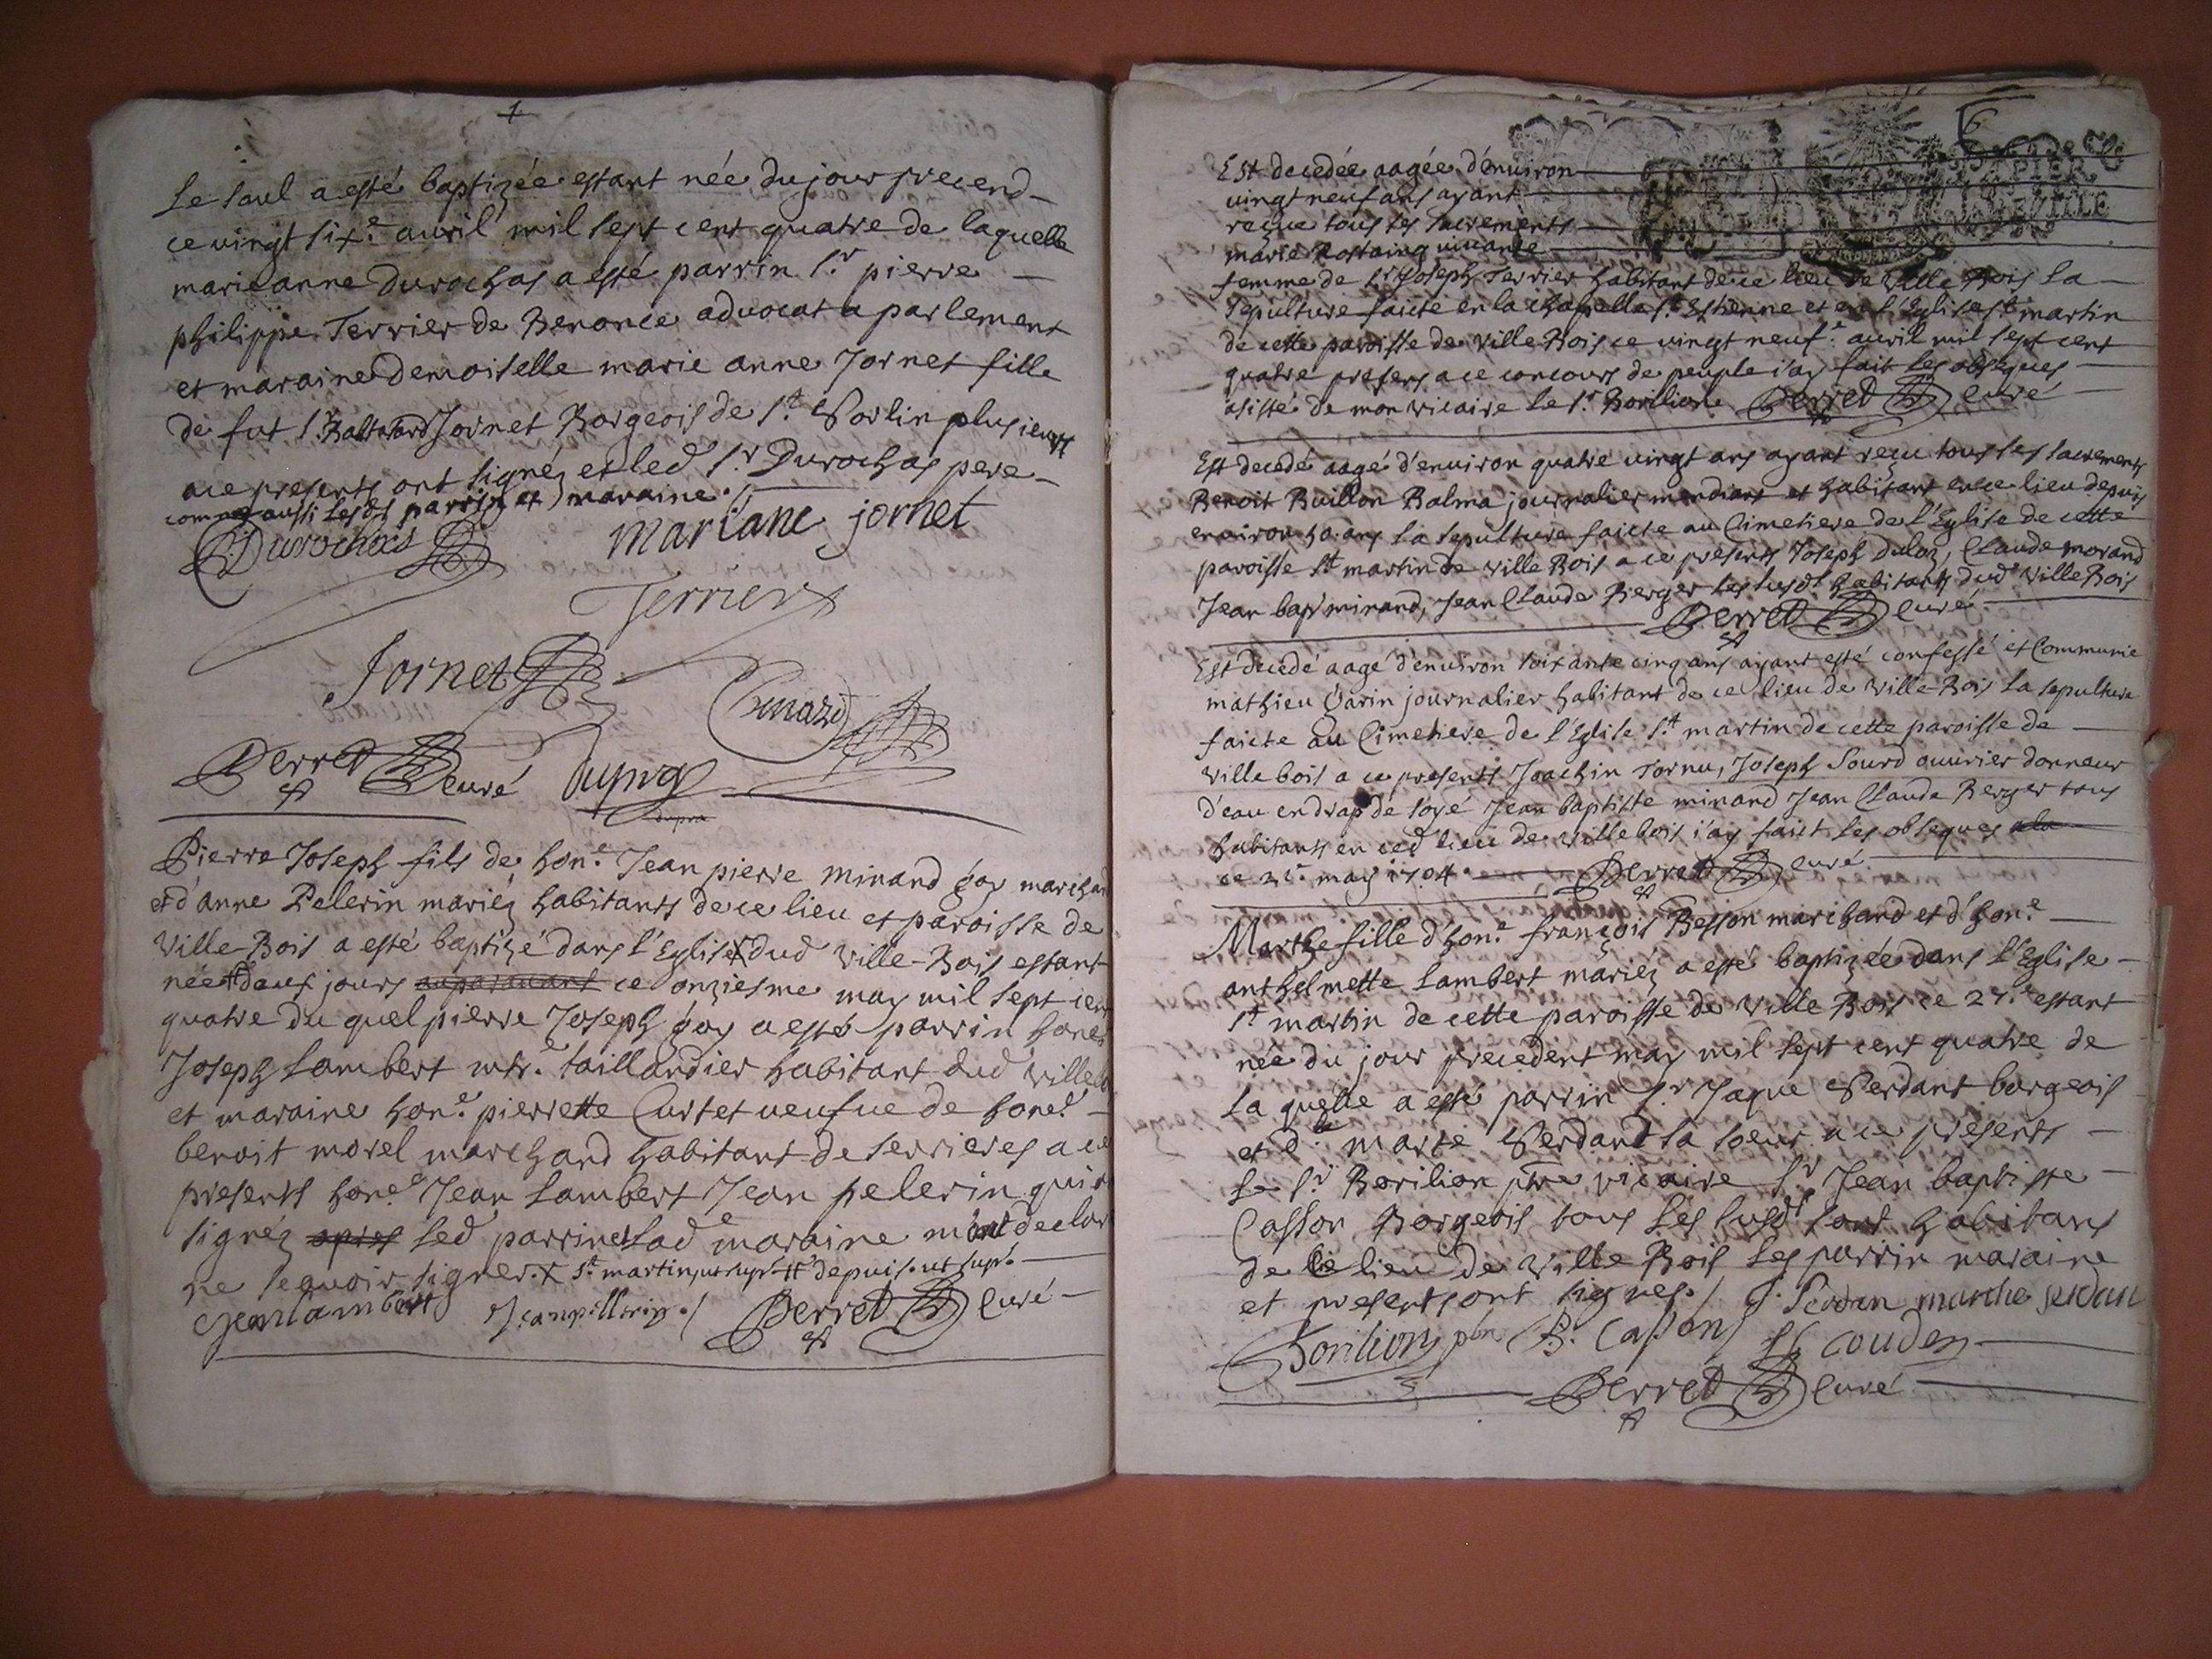 Le Saul a esté baptizée estant née du jour precend-
ce vingt six.e auvril mil sept cent quatre de laquelle
marie anne Durochas a esté parrin S.r pierre
philippe Terrier de Benonce advocat a parlement
et maraine demoiselle marie anne Jornet fille
de fut S.r Jornet Borgeois de S.t Sorlin plusieurs
a ce presents ont signéz et led S.r Durochas pere
comme aussi lesds parrin et maraine./
Durochas
mariane jornet
Terrier
Jornet
Perret curé
Pierre Joseph fils de hon.e Jean pierre minand goy marchand
et d'anne Pelerin mariéz habitants de ce lieu et paroisse de
Ville-Bois a esté baptizé dans l'Eglise X dud Ville-Bois estant
née # deux jours auparauant ce onziesme may mil sept cent
quatre du quel pierre Joseph goy a esté parrin hone
Joseph Lambert mtr.e taillandier habitant dud Villeb
et maraine hon.e pierrette Curtet ueufue de hone.e
benoit morel marchand habitant de Serrieres a ce
presents hone.e Jean Lambert Jean pelerin qui
signéz apres led parrin et lad maraine declar
ne scauoir signer. X S.t martin, ut sup.r # depuis. ut sup.r
Jean lambert J can pillerin ./ Perret Curé
6
Est decedée aagée d'enuiron
uingt neuf ans ayant
reçue tous les sacrements
marie Rostaing uiuante
femme de S.r Joseph Terrier habitant de ce lieu de Ville Bois La
Sepulture faicte en la chapelle S.t Estienne et en l'Eglise S.t martin
de cette paroisse de Ville Bois ce uingt neuf.e auvril mil sept cent
quatre presens a ce concours de peuple i'ay fait les obseques
asisté de mon vicaire le S.r Borilion Perret Curé
Est decedé aagé d'enuiron quatre uingt ans ayant reçu tous les sacrements
Benoit Buillon Balma journalier mendiant et habitant en ce lieu depuis
enuiron ans La sepulture faicte au Cimetiere de l'Eglise de cette
paroisse S.t martin de Ville Bois a ce presents Joseph Duloz, Claude morand
Jean bap.t minand, Jean Claude Berger les susd.ts habitants dud Ville Bois
Perret Curé
Est decedé aagé d'enuiron soixante cinq ans ayant esté confessé et Communie
mathieu Garin journalier habitant de ce lieu de Ville-Bois La sepulture
faicte au Cimetiere de l'Eglise S.t martin de cette paroisse de
Ville bois a ce presents Joachin Tornu, Joseph Sourd ouurier donneur
d'eau en drap de soye Jean baptiste minand Jean Claude Berger tous
habitants en ced lieu de Ville bois i'ay faict les obseques a la
ce may 1704 Perret Curé
Marthe fille d'hon.e françois Besson marchand et d'hon.e
anthelmette Lambert mariéz a esté baptizée dans l'Eglise
S.t martin de cette paroisse de Ville Bois ce estant
née du jour precedent may mil sept cent quatre de
La quelle a esté parrin S.r Jaque Serdant borgeois
et d.lle Marte Serdand sa soeur a ce presents
Le S.r Borilion ptre vicaire S.r Jean baptiste
Casson Borgeois tous les susd.ts sont habitans
de ce lieu de Ville Bois les parrin maraine
et presents ont signes./ J. Serdan marthe serdan
Borilion pbr B. Casson
Perret Curé